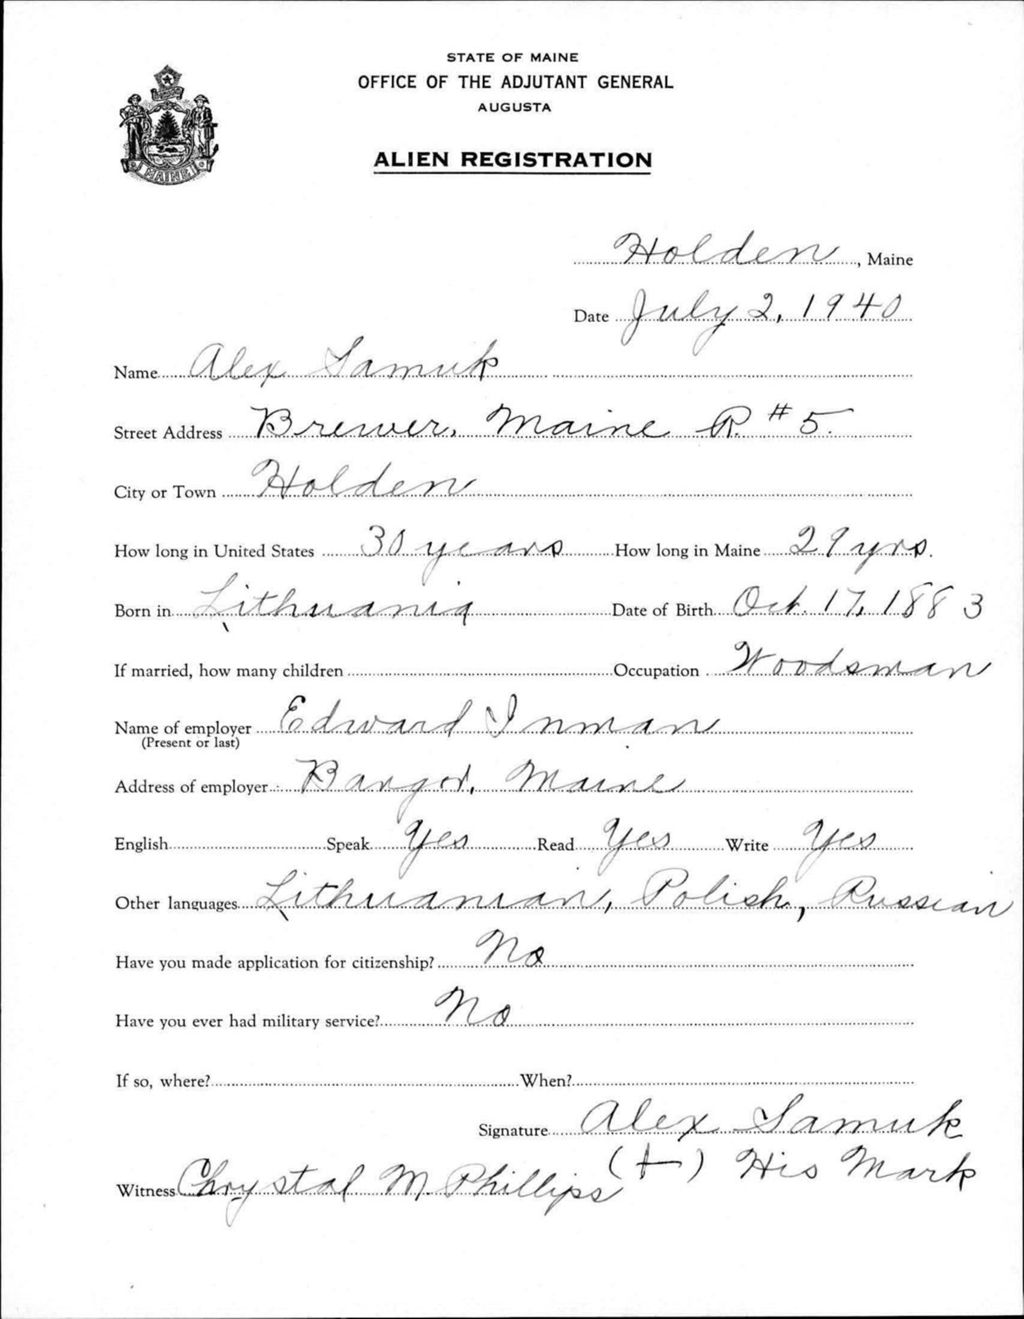 STATE OF MAINE
OFFICE OF THE ADJUTANT GENERAL
AUGUSTA
ALIEN REGISTRATION
MAINE
Holden, Maine
Date July 2, 1940
Name Alex Samuk
Street Address Brewer, Maine R. #5.
City or Town Holden
How long in United States 30 years How long in Maine 29 yrs.
Born in Lithuania Date of Birth Oct. 17, 1883
If married, how many children Occupation Woodsman
Name of employer Edward Inman
(Present or last)
Address of employer Bangor, Maine
English Speak Yes Read Yes Write Yes
Other languages Lithuanian, Polish, Russian
Have you made application for citizenship? No
Have you ever had military service? No
If so, where? When?
Signature Alex Samuk
(+) His Mark
Witness Chrystal M. Phillips